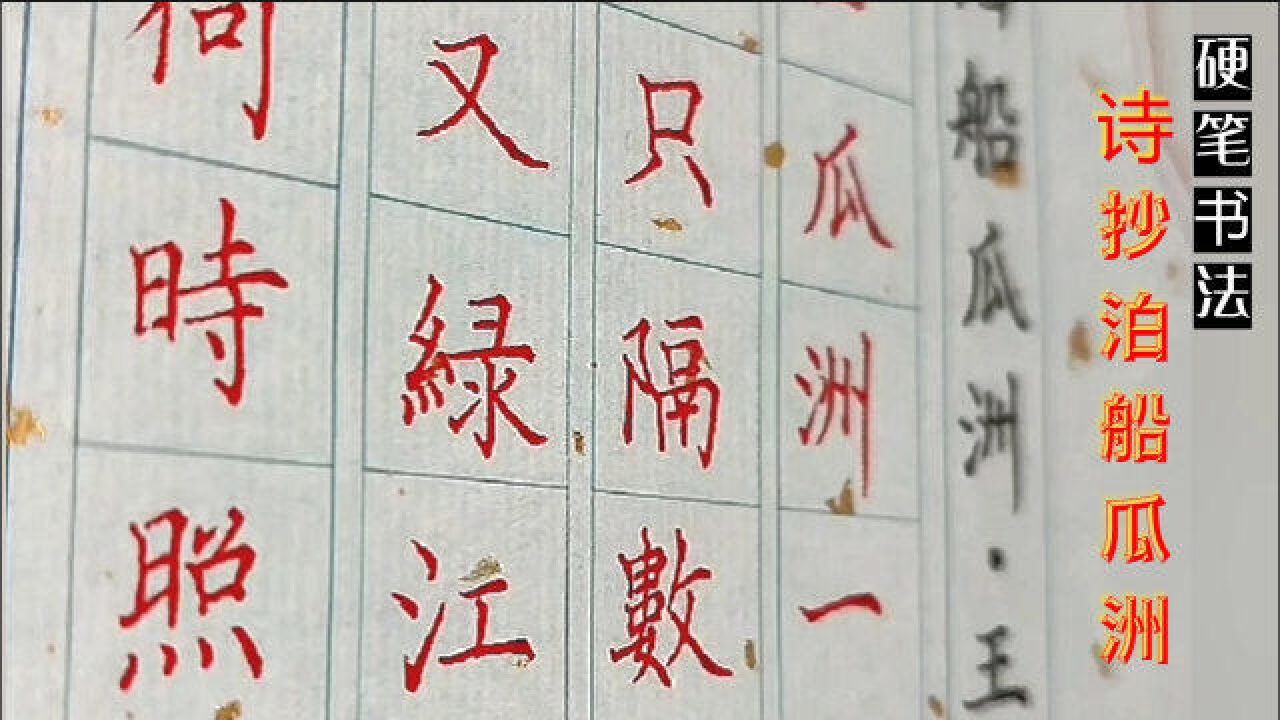 硬笔书法
诗抄泊船瓜洲
船瓜洲·王
瓜洲一
只隔數
又緑江
何時照